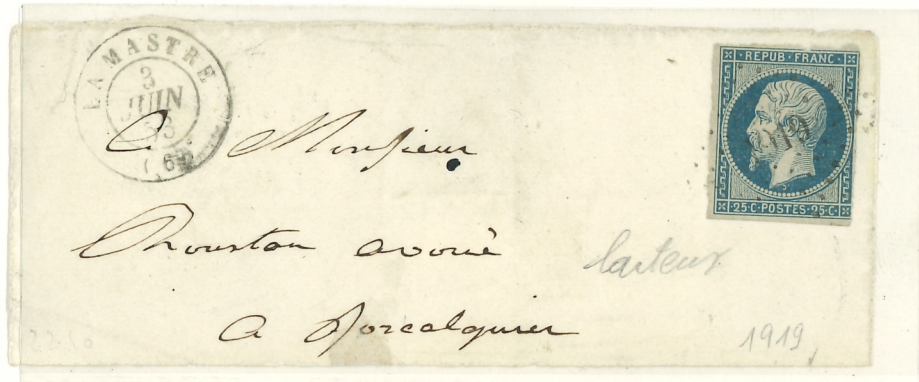 LAMASTRE
3
JUIN
53
(6)
REPUB · FRANC
25·C·POSTES·25·C
A Monsieur
Rouston avoué
a Forcalquier
1919
22.50